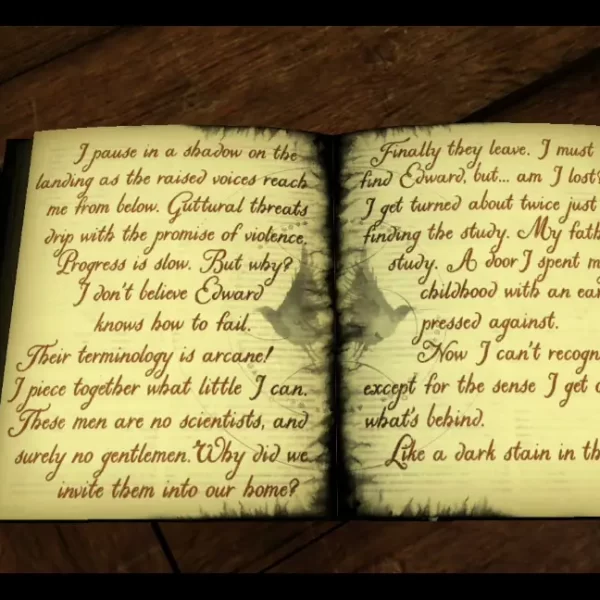 I pause in a shadow on the
landing as the raised voices reach
me from below. Guttural threats
drip with the promise of violence.
Progress is slow. But why?
I don't believe Edward
knows how to fail.
Their terminology is arcane!
I piece together what little I can.
These men are no scientists, and
surely no gentlemen. Why did we
invite them into our home?
Finally they leave. I must
find Edward, but... am I lost?
I get turned about twice just
finding the study. My fath
study. A door I spent m
childhood with an ear
pressed against.
Now I can't recogn
except for the sense I get o
what's behind.
Like a dark stain in th